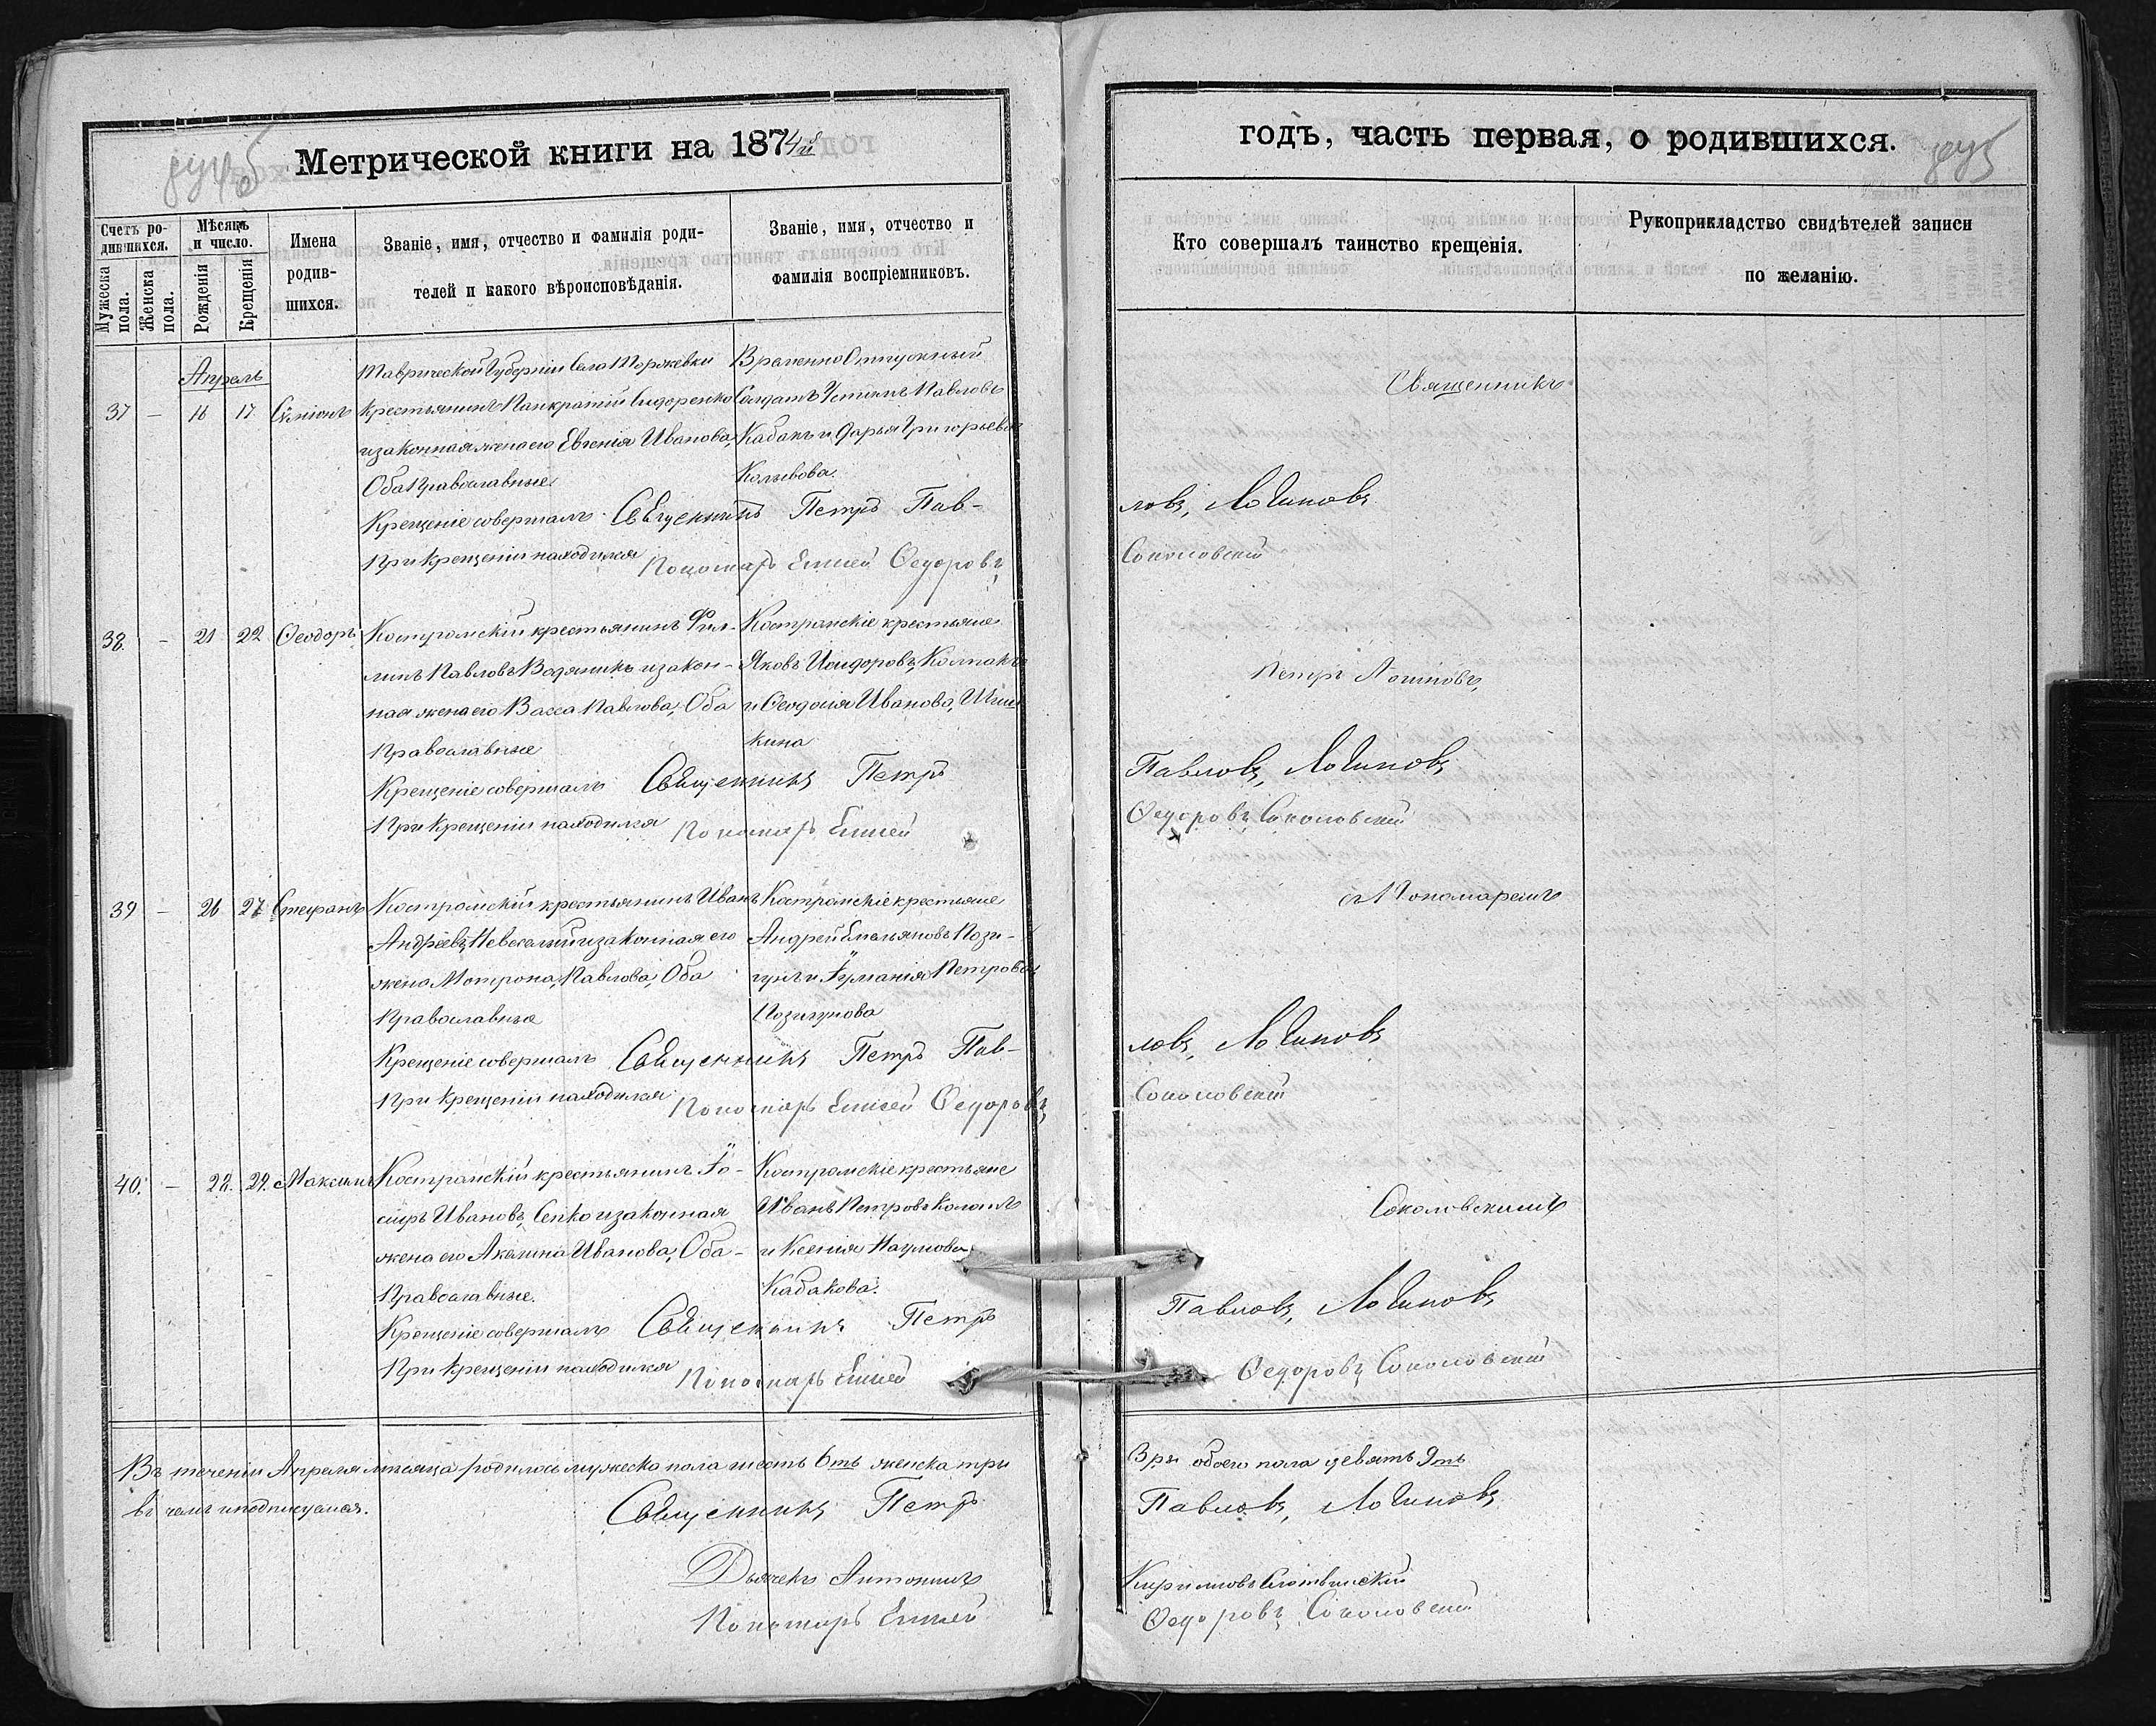 Метрической книги на 1874й
годъ, часть первая, о родившихся.
Счетъ ро-
дившихся.
Мужеска
пола.
Женска
пола.
Мѣсяцъ
и число.
Рожденія
Крещенія
Имена
родив-
шихся.
Званіе, имя, отчество и фамилія роди-
телей и какого вѣроисповѣданія.
Званіе, имя, отчество и
фамилія воспріемниковъ.
Кто совершалъ таинство крещенія.
Рукоприкладство свидѣтелей записи
по желанію.
Апрель
37 — 16 17
Таврической Губерніи Села Торжевки
крестьянинъ Панкратій Сидоренко
и законная жена его Евгенія Иванова,
Оба Православные
Временно Отпускный
Солдатъ Устинъ Павловъ
Кабакъ и Дарья Григорьева
Священникъ
Крещеніе совершалъ Священникъ Петръ Пав-
ловъ, Логиновъ
При Крещеніи находился Пономарь Елисей Ѳедоровъ,
Соколовскій
38. — 21 22 Ѳеодоръ
Костромскій крестьянинъ Фил-
липъ Павловъ Водяникъ и закон-
ная жена его Васса Павлова, Оба
Православные
Костромскіе крестьяне
Яковъ Исидоровъ, Колпакъ
и Ѳеодосія Иванова,
кина
Петръ Логиновъ,
Крещеніе совершалъ Священникъ Петръ
Павловъ, Логиновъ
При Крещеніи находился Пономарь Елисей
Ѳедоровъ Соколовскій
39 — 26 27 Стефанъ
Костромскій крестьянинъ Иванъ
Андреевъ и законная его
жена Мотрона, Павлова, Оба
Православные
Костромскіе крестьяне
Андрей Емельяновъ Пози-
гунъ и Іуліанія Петрова
Позигунова
съ Пономаремъ
Крещеніе совершалъ Священникъ Петръ Пав-
ловъ, Логиновъ
При Крещеніи находился Пономарь Елисей Ѳедоровъ,
Соколовскій
40. — 28. 29. Максимъ
Костромскій крестьянинъ Іо-
сифъ Ивановъ, Сепко и законная
жена его Акилина Иванова, Оба
Православные.
Костромскіе крестьяне
Иванъ Петровъ
и Ксенія Наумова
Кабакова.
Соколовскимъ
Крещеніе совершалъ Священникъ Петръ
Павловъ, Логиновъ
При Крещеніи находился Пономарь Елисей
Ѳедоровъ Соколовскій
Въ теченіи Апреля мѣсяца родилось мужеска пола шесть 6ть женска три
3ри обоего пола девять 9ть
въ чемъ и подписуемся.
Священникъ Петръ
Павловъ, Логиновъ
Дьячекъ Антонинъ
Кирилловъ Слотвинскій
Пономарь Елисей
Ѳедоровъ Соколовскій